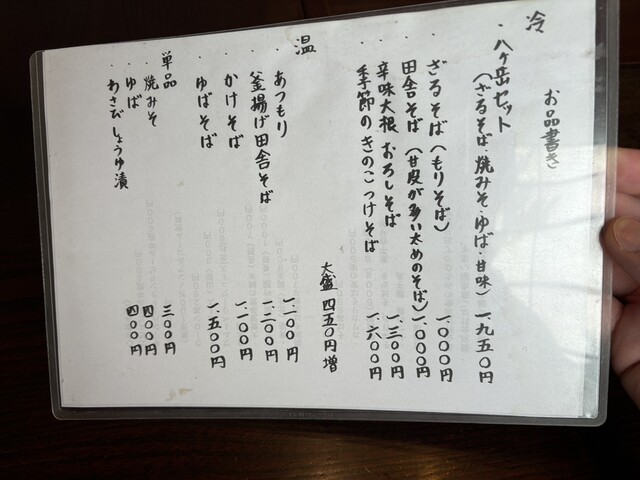 お品書き
冷
・八ヶ岳セット
(ざるそば・焼みそ・ゆば・甘味) 一、九五〇円
・ざるそば(もりそば) 一、〇〇〇円
・田舎そば(甘皮が多い太めのそば) 一、〇〇〇円
・辛味大根おろしそば 一、三〇〇円
・季節のきのこつけそば 一、六〇〇円
大盛 四五〇円増
温
・あつもり 一、一〇〇円
・釜揚げ田舎そば 一、二〇〇円
・かけそば 一、一〇〇円
・ゆばそば 一、五〇〇円
単品
・焼みそ 三〇〇円
・ゆば 四〇〇円
・わさびしょうゆ漬 四〇〇円